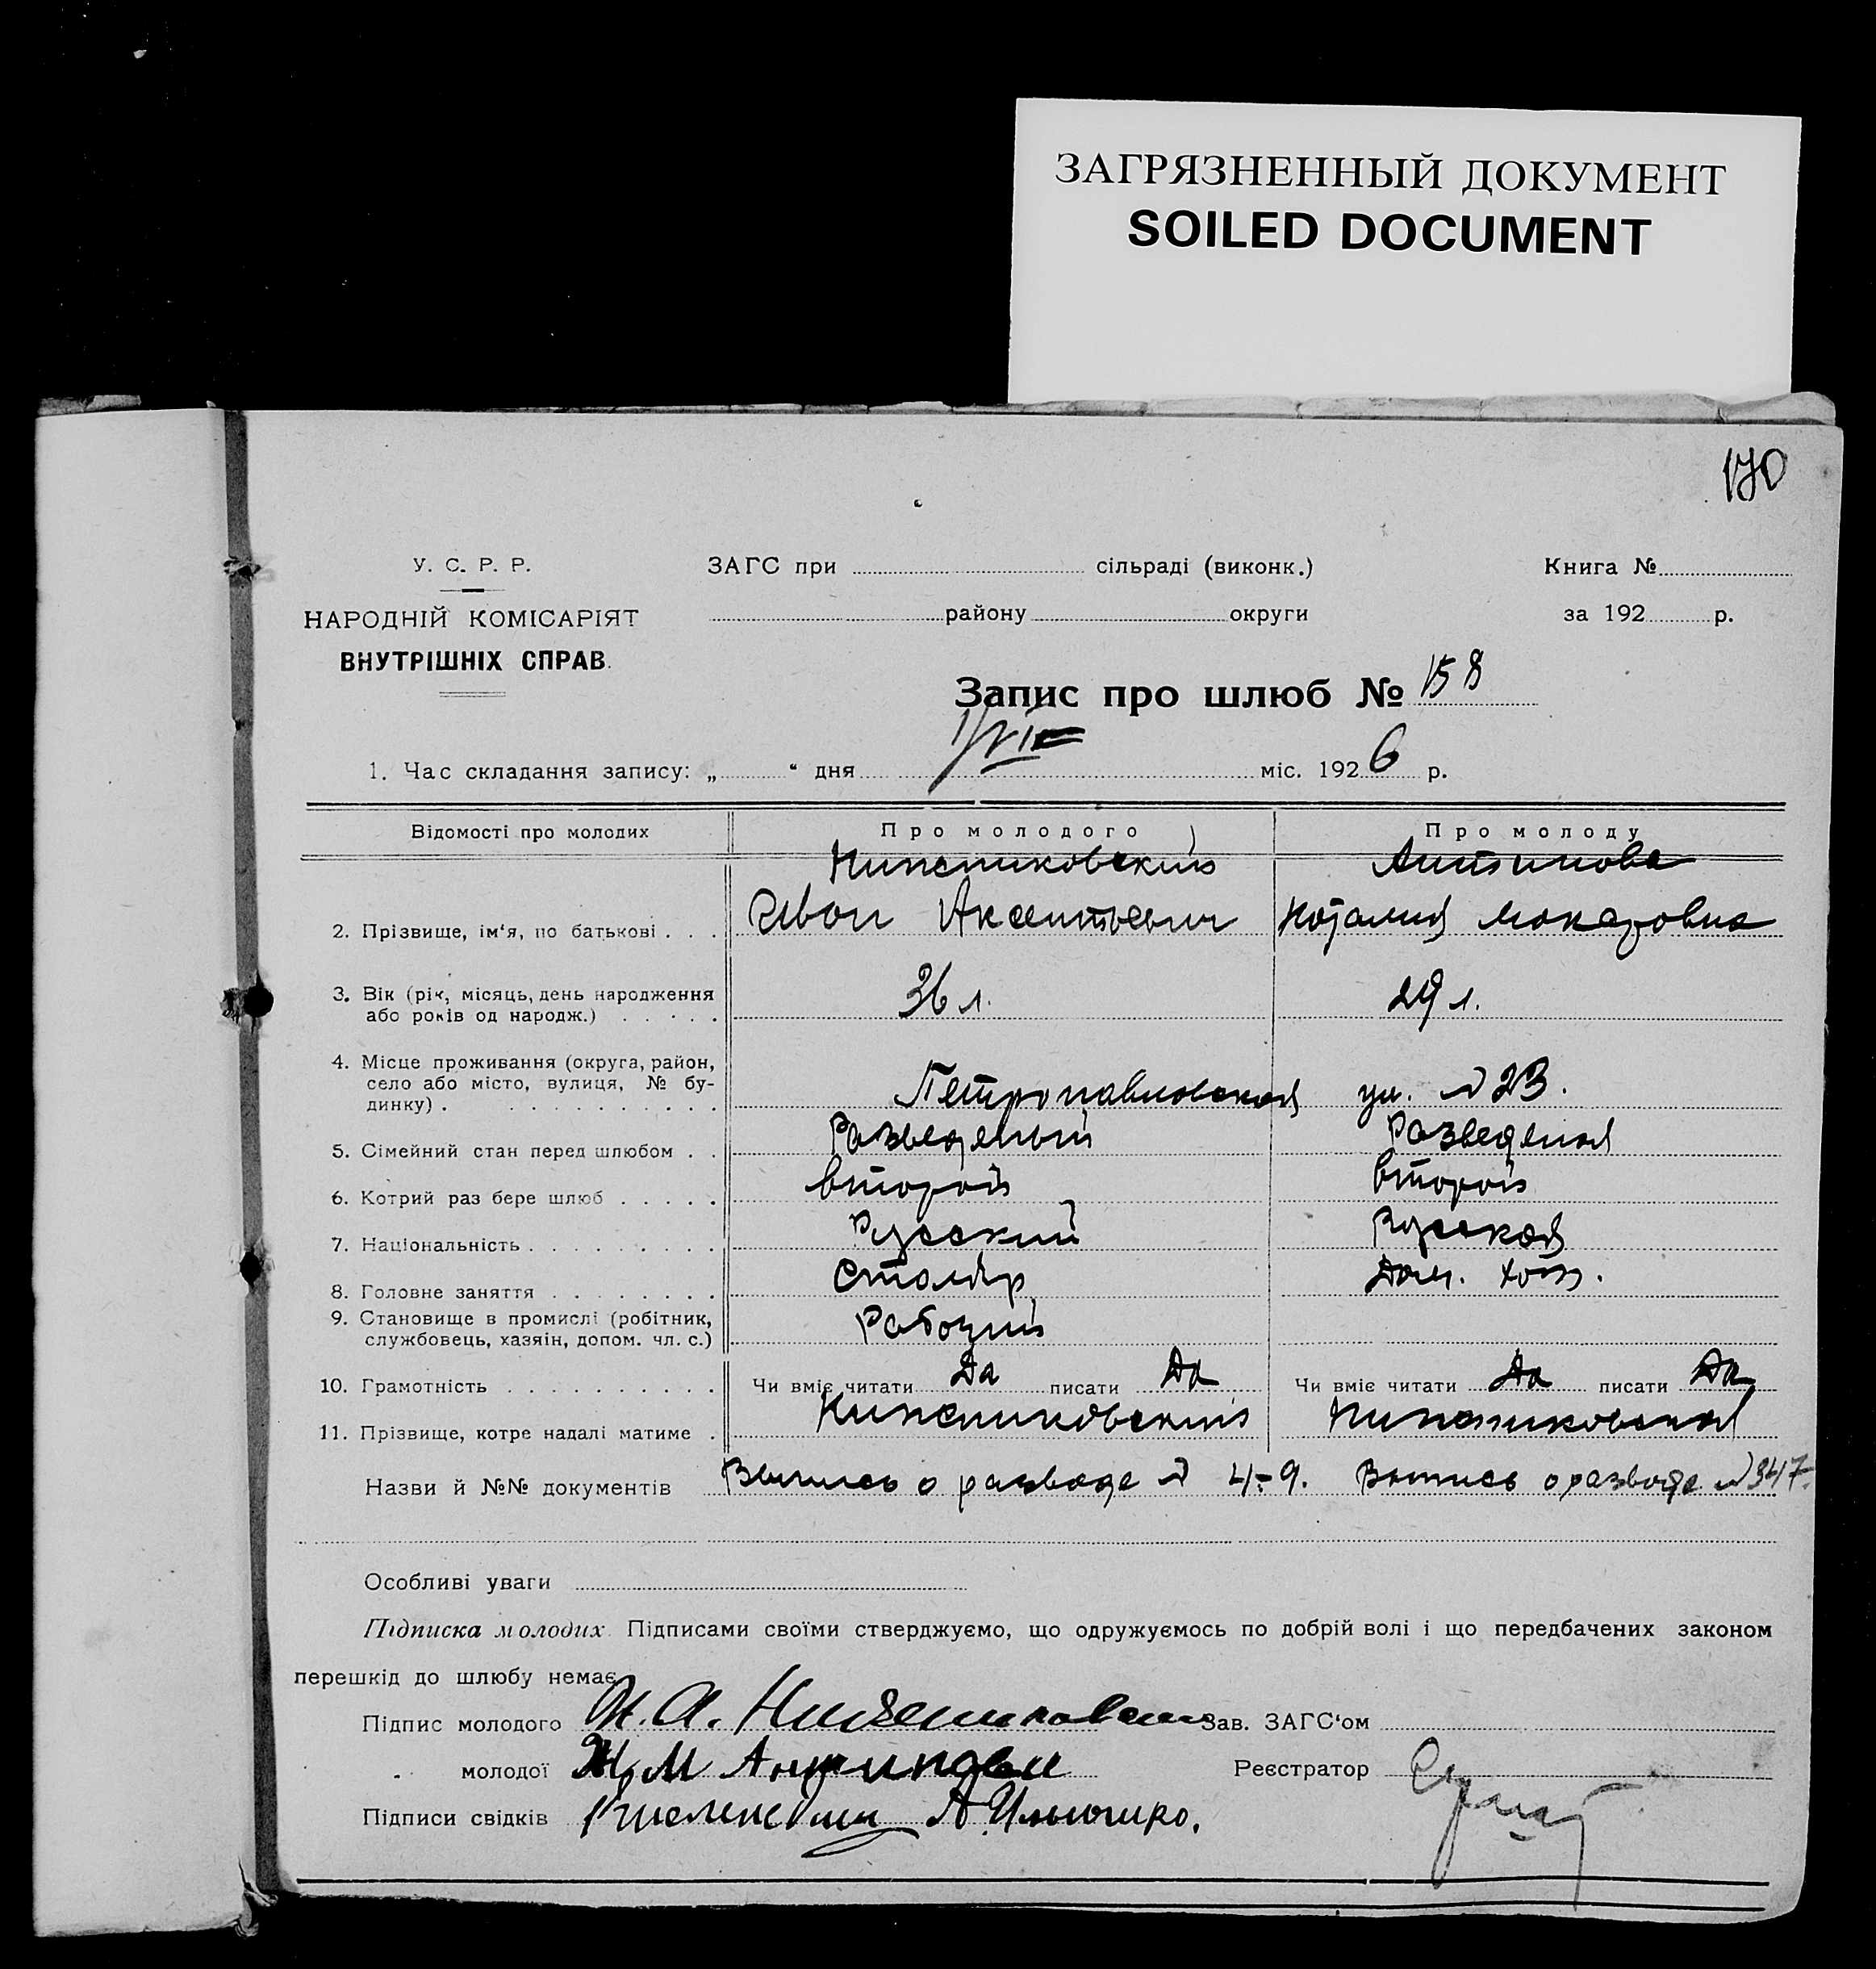 ЗАГРЯЗНЕННЫЙ ДОКУМЕНТ
SOILED DOCUMENT
170
У. С. Р. Р.
НАРОДНІЙ КОМІСАРІЯТ
ВНУТРІШНІХ СПРАВ.
ЗАГС при сільраді (виконк.)
району округи
Книга №
за 192 р.
Запис про шлюб № 158
1. Час складання запису: „ “ дня 1/VI міс. 1926 р.
Відомості про молодих Про молодого Про молоду
Антипова
2. Прізвище, ім‘я, по батькові . . . Иван Аксентьевич Наталия Макаровна
3. Вік (рік, місяць, день народження
або років од народж.) . . . . . 36 л. 29 л.
4. Місце проживання (округа, район,
село або місто, вулиця, № бу-
динку) . . . . . . . . . . . Петропавловская ул. № 23.
5. Сімейний стан перед шлюбом . . Разведеный Разведеная
6. Котрий раз бере шлюб . . . . . второй второй
7. Національність . . . . . . . . . Русский Русская
8. Головне заняття . . . . . . . . Столяр Дом. хоз.
9. Становище в промислі (робітник,
службовець, хазяін, допом. чл. с.) Рабочий
10. Грамотність . . . . . . . . . . Чи вміє читати Да писати Да Чи вміє читати Да писати Да
11. Прізвище, котре надалі матиме .
Назви й №№ документів Выпись о разводе № 4-9. Выпись о разводе № 347
Особливі уваги
Підписка молодих. Підписами своїми стверджуємо, що одружуємось по добрій волі і що передбачених законом
перешкід до шлюбу немає
Підпис молодого И. А. Зав. ЗАГС‘ом
„ молодої Н М Антипова Реєстратор
Підписи свідків А.